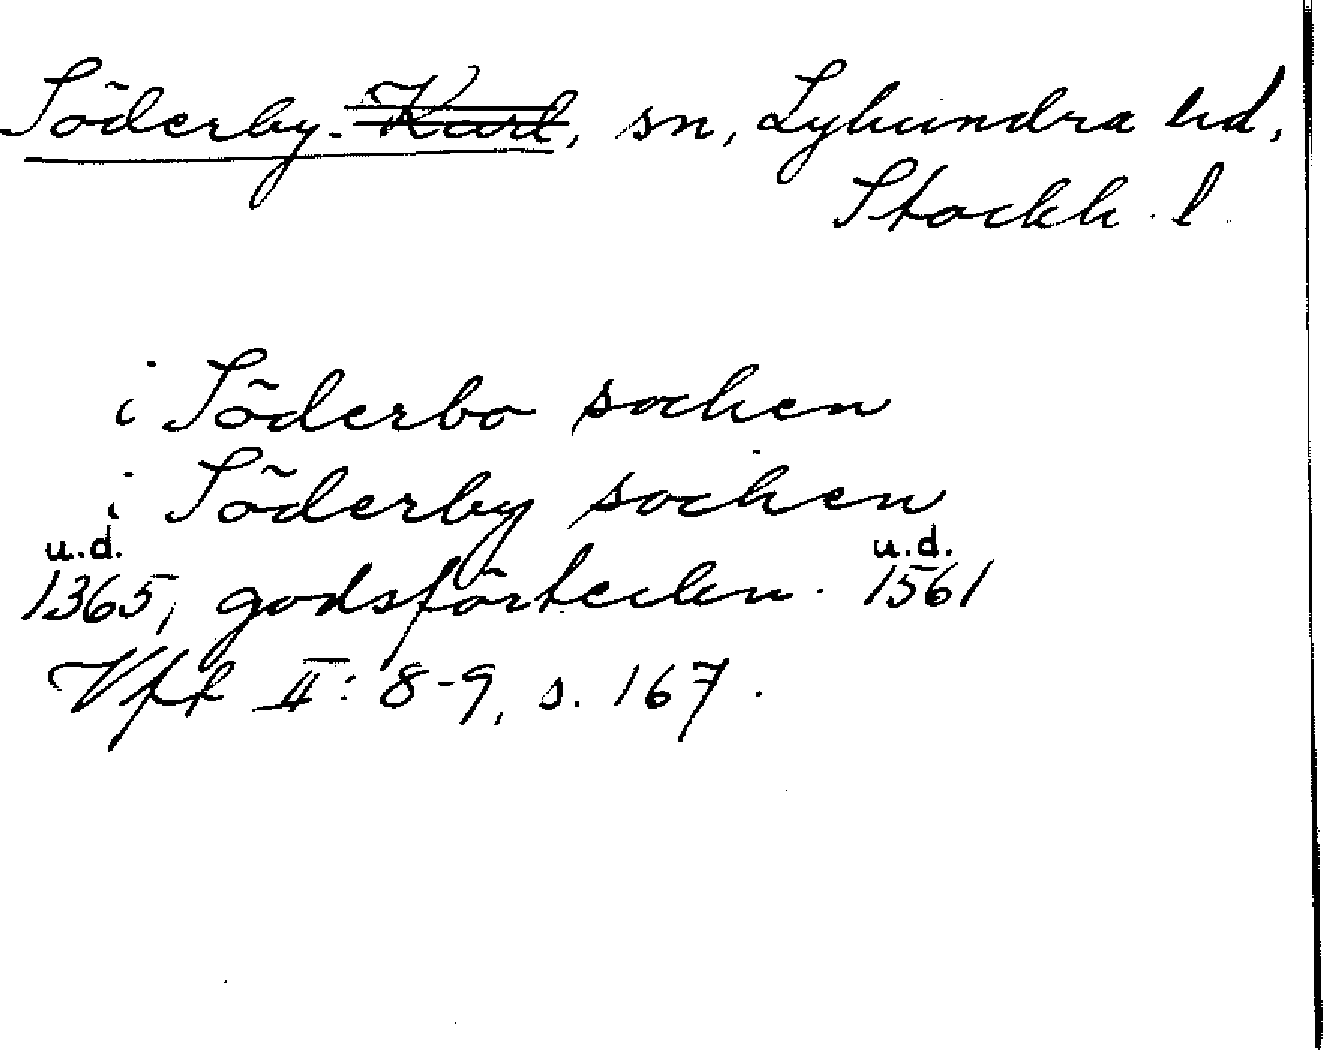 Söderby-Karl, sn, Lyhundra hd,
Stockh. l.
i Söderbo sochen
i Söderby sochen
u.d. u.d.
1365, godsförteckn. 1561
Vft II: 8-9, s. 167.